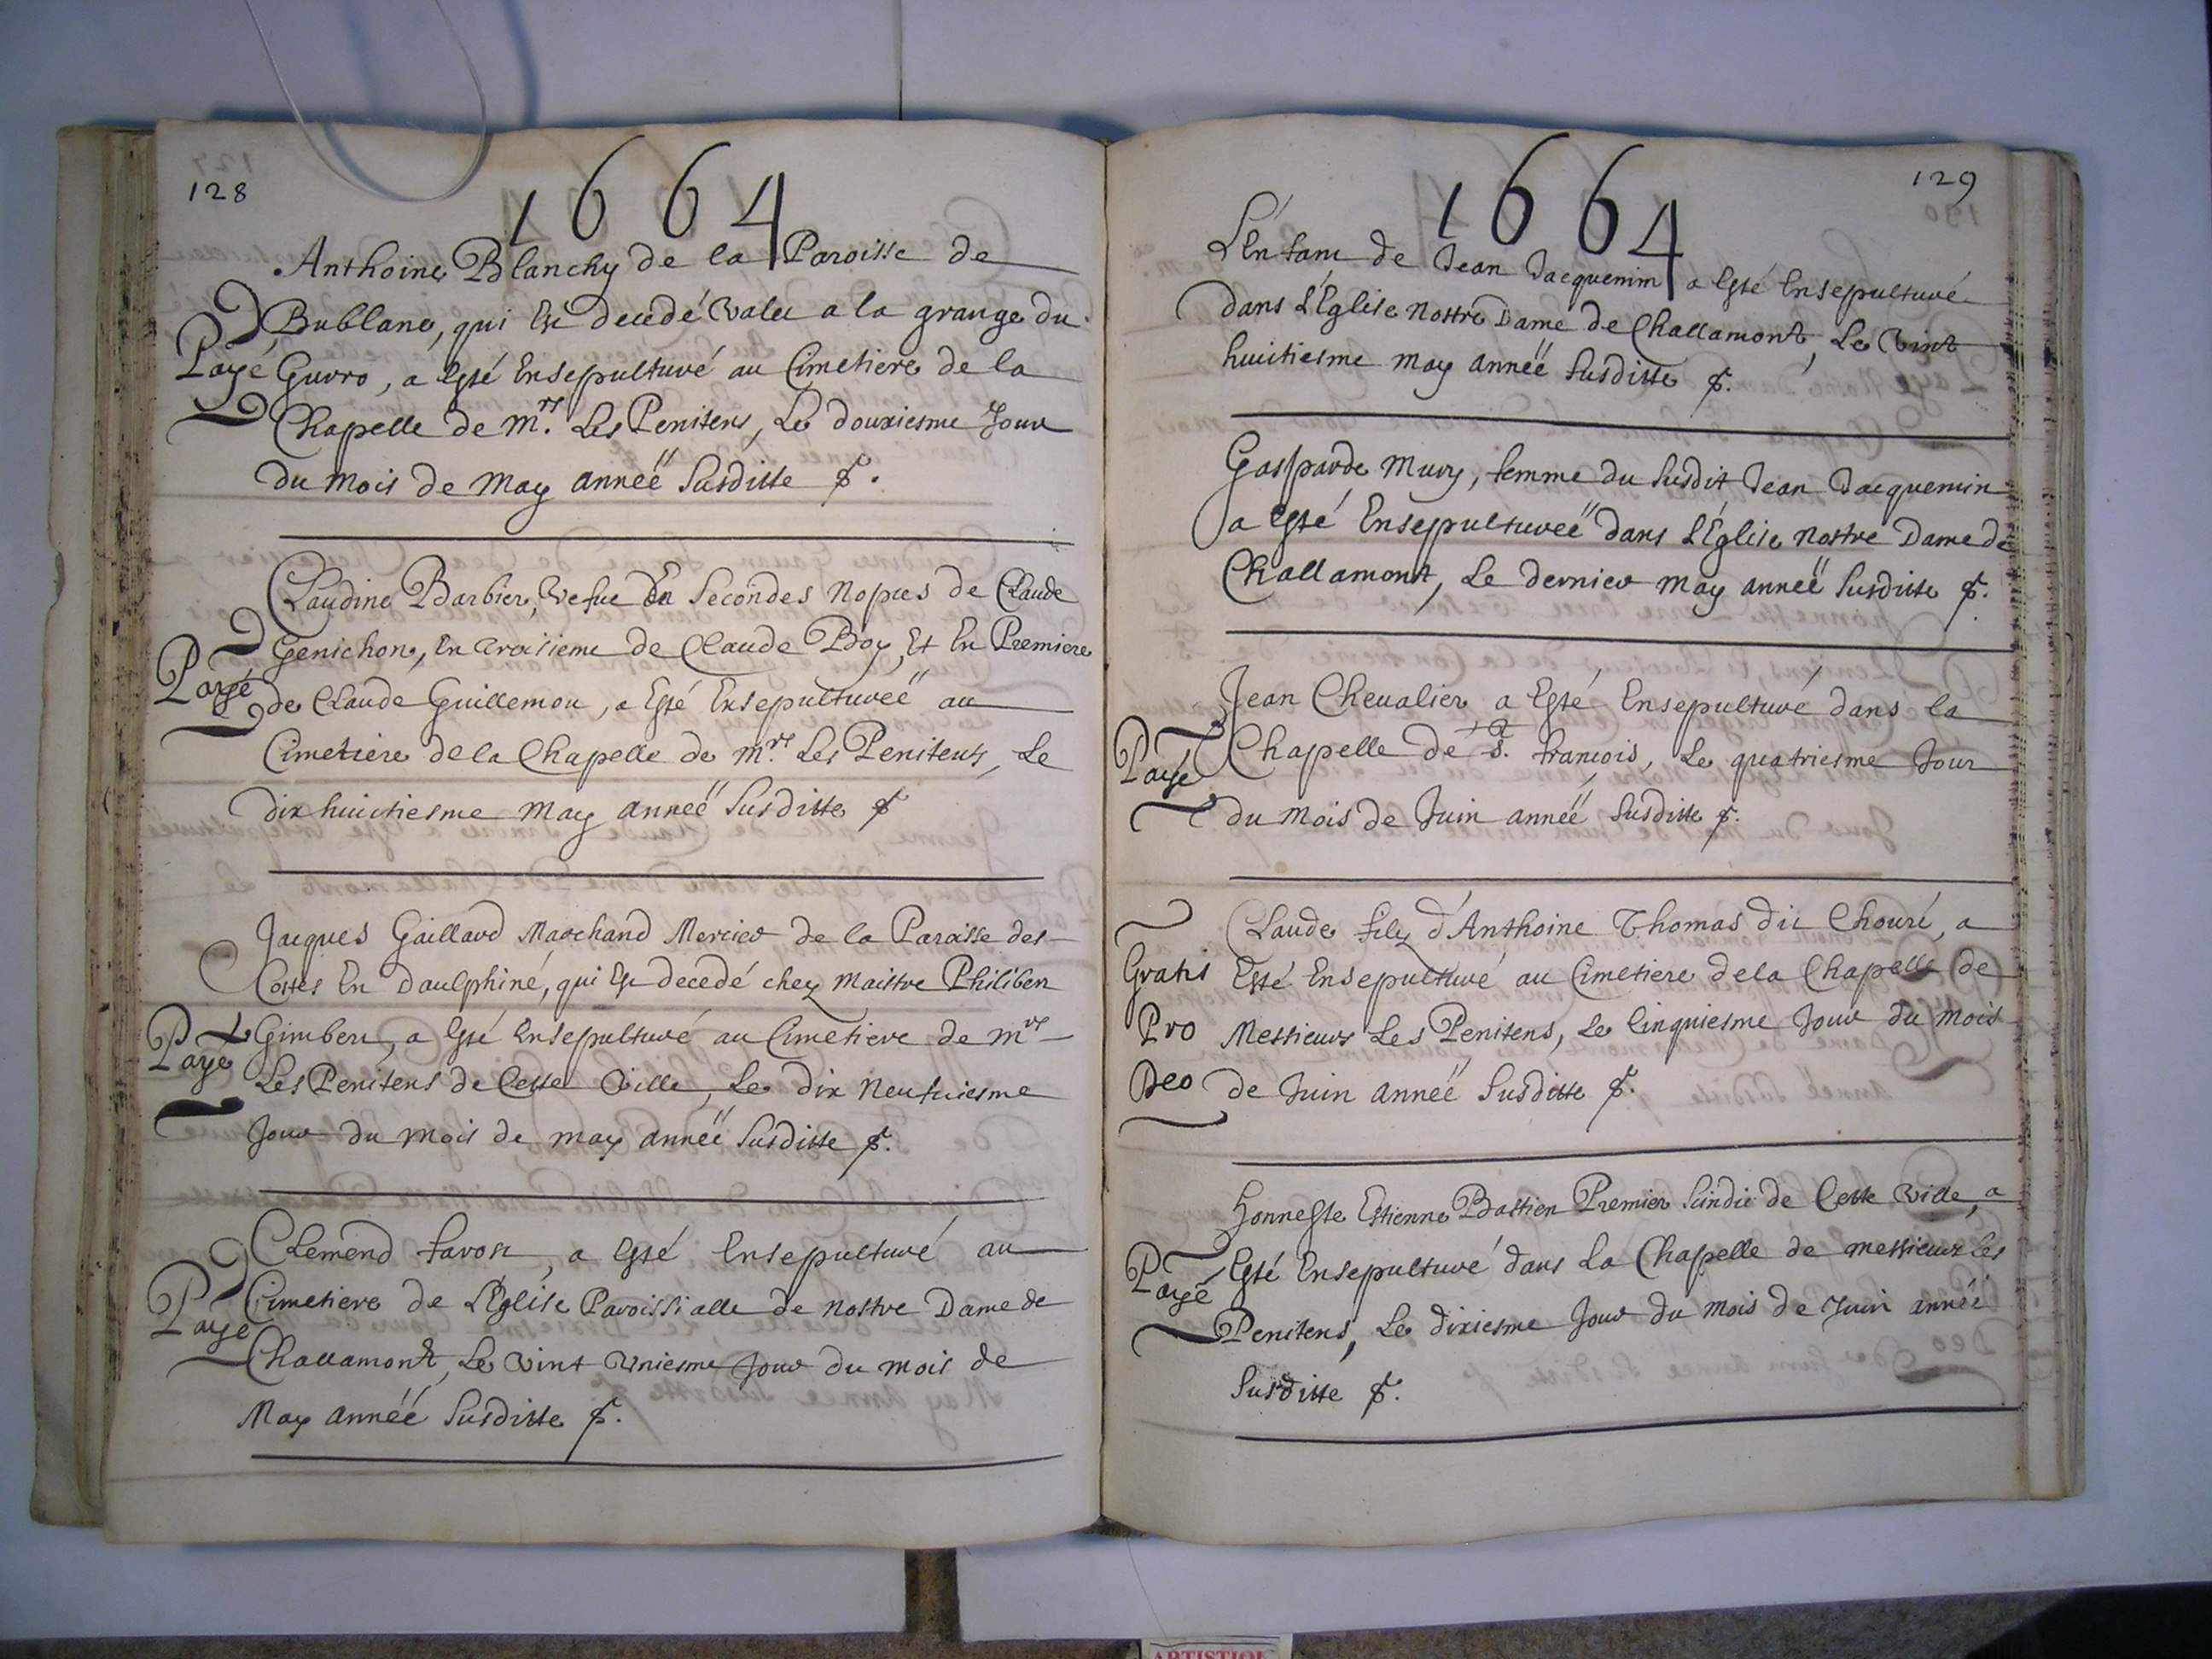 128
1664
Anthoine Blanchy de la Paroisse de
Bublane, qui Est decedé valet a la grange du
Payé
Guvro, a Esté Ensepulturé au Cimetiere de la
Chapelle de mrs. Les Penitens, Le douxiesme Jour
du mois de may anneé Susditte $.
Claudine Barbier, vefue En Secondes Nopces de Claude
Genichon, En troisieme de Claude Boy, Et En Premiere
Payé
de Claude Guillemon, a Esté Ensepultureé au
Cimetiere de la Chapelle de mrs. Les Penitens, Le
dix huictiesme may anneé Susditte $
Jacques Gaillard Marchand Mercier de la Paroisse des
Costes En Daulphiné, qui Est decedé chez maistre Philibert
Payé
Gimbert, a Esté Ensepulturé au Cimetiere de mrs
Les Penitens de Cette Ville, Le dix Neufuiesme
Jour du mois de may anneé Susditte $.
Clemend favost, a Esté Ensepulturé au
Payé
Cimetiere de L'Eglise Paroissialle de nostre Dame de
Challamont, Le vint Uniesme Jour du mois de
May anneé Susditte $.
129
1664
L'Enfant de Jean Jacquemin a Esté Ensepulturé
dans L'Eglise nostre Dame de Challamont, Le vint
huictiesme may anneé Susditte $.
Gasparde Mury, femme du Susdit Jean Jacquemin
a Esté Ensepultureé dans L'Eglise nostre Dame de
Challamont, Le dernier may anneé Susditte $.
Jean Cheualier a Esté Ensepulturé dans la
Payé
Chapelle de St. francois, Le quatriesme Jour
du mois de Juin anneé Susditte $.
Claude filz d'Anthoine Thomas dit Chouré, a
Gratis
Esté Ensepulturé au Cimetiere de la Chapelle de
Pro
Messieurs Les Penitens, Le Cinquiesme Jour du mois
Deo
de Juin anneé Susditte $.
Honneste Estienne Bastien Premier Scindic de Cette Ville, a
Payé
Esté Ensepulturé dans La Chapelle de messieurs les
Penitens, Le dixiesme Jour du mois de Juin anneé
Susditte $.